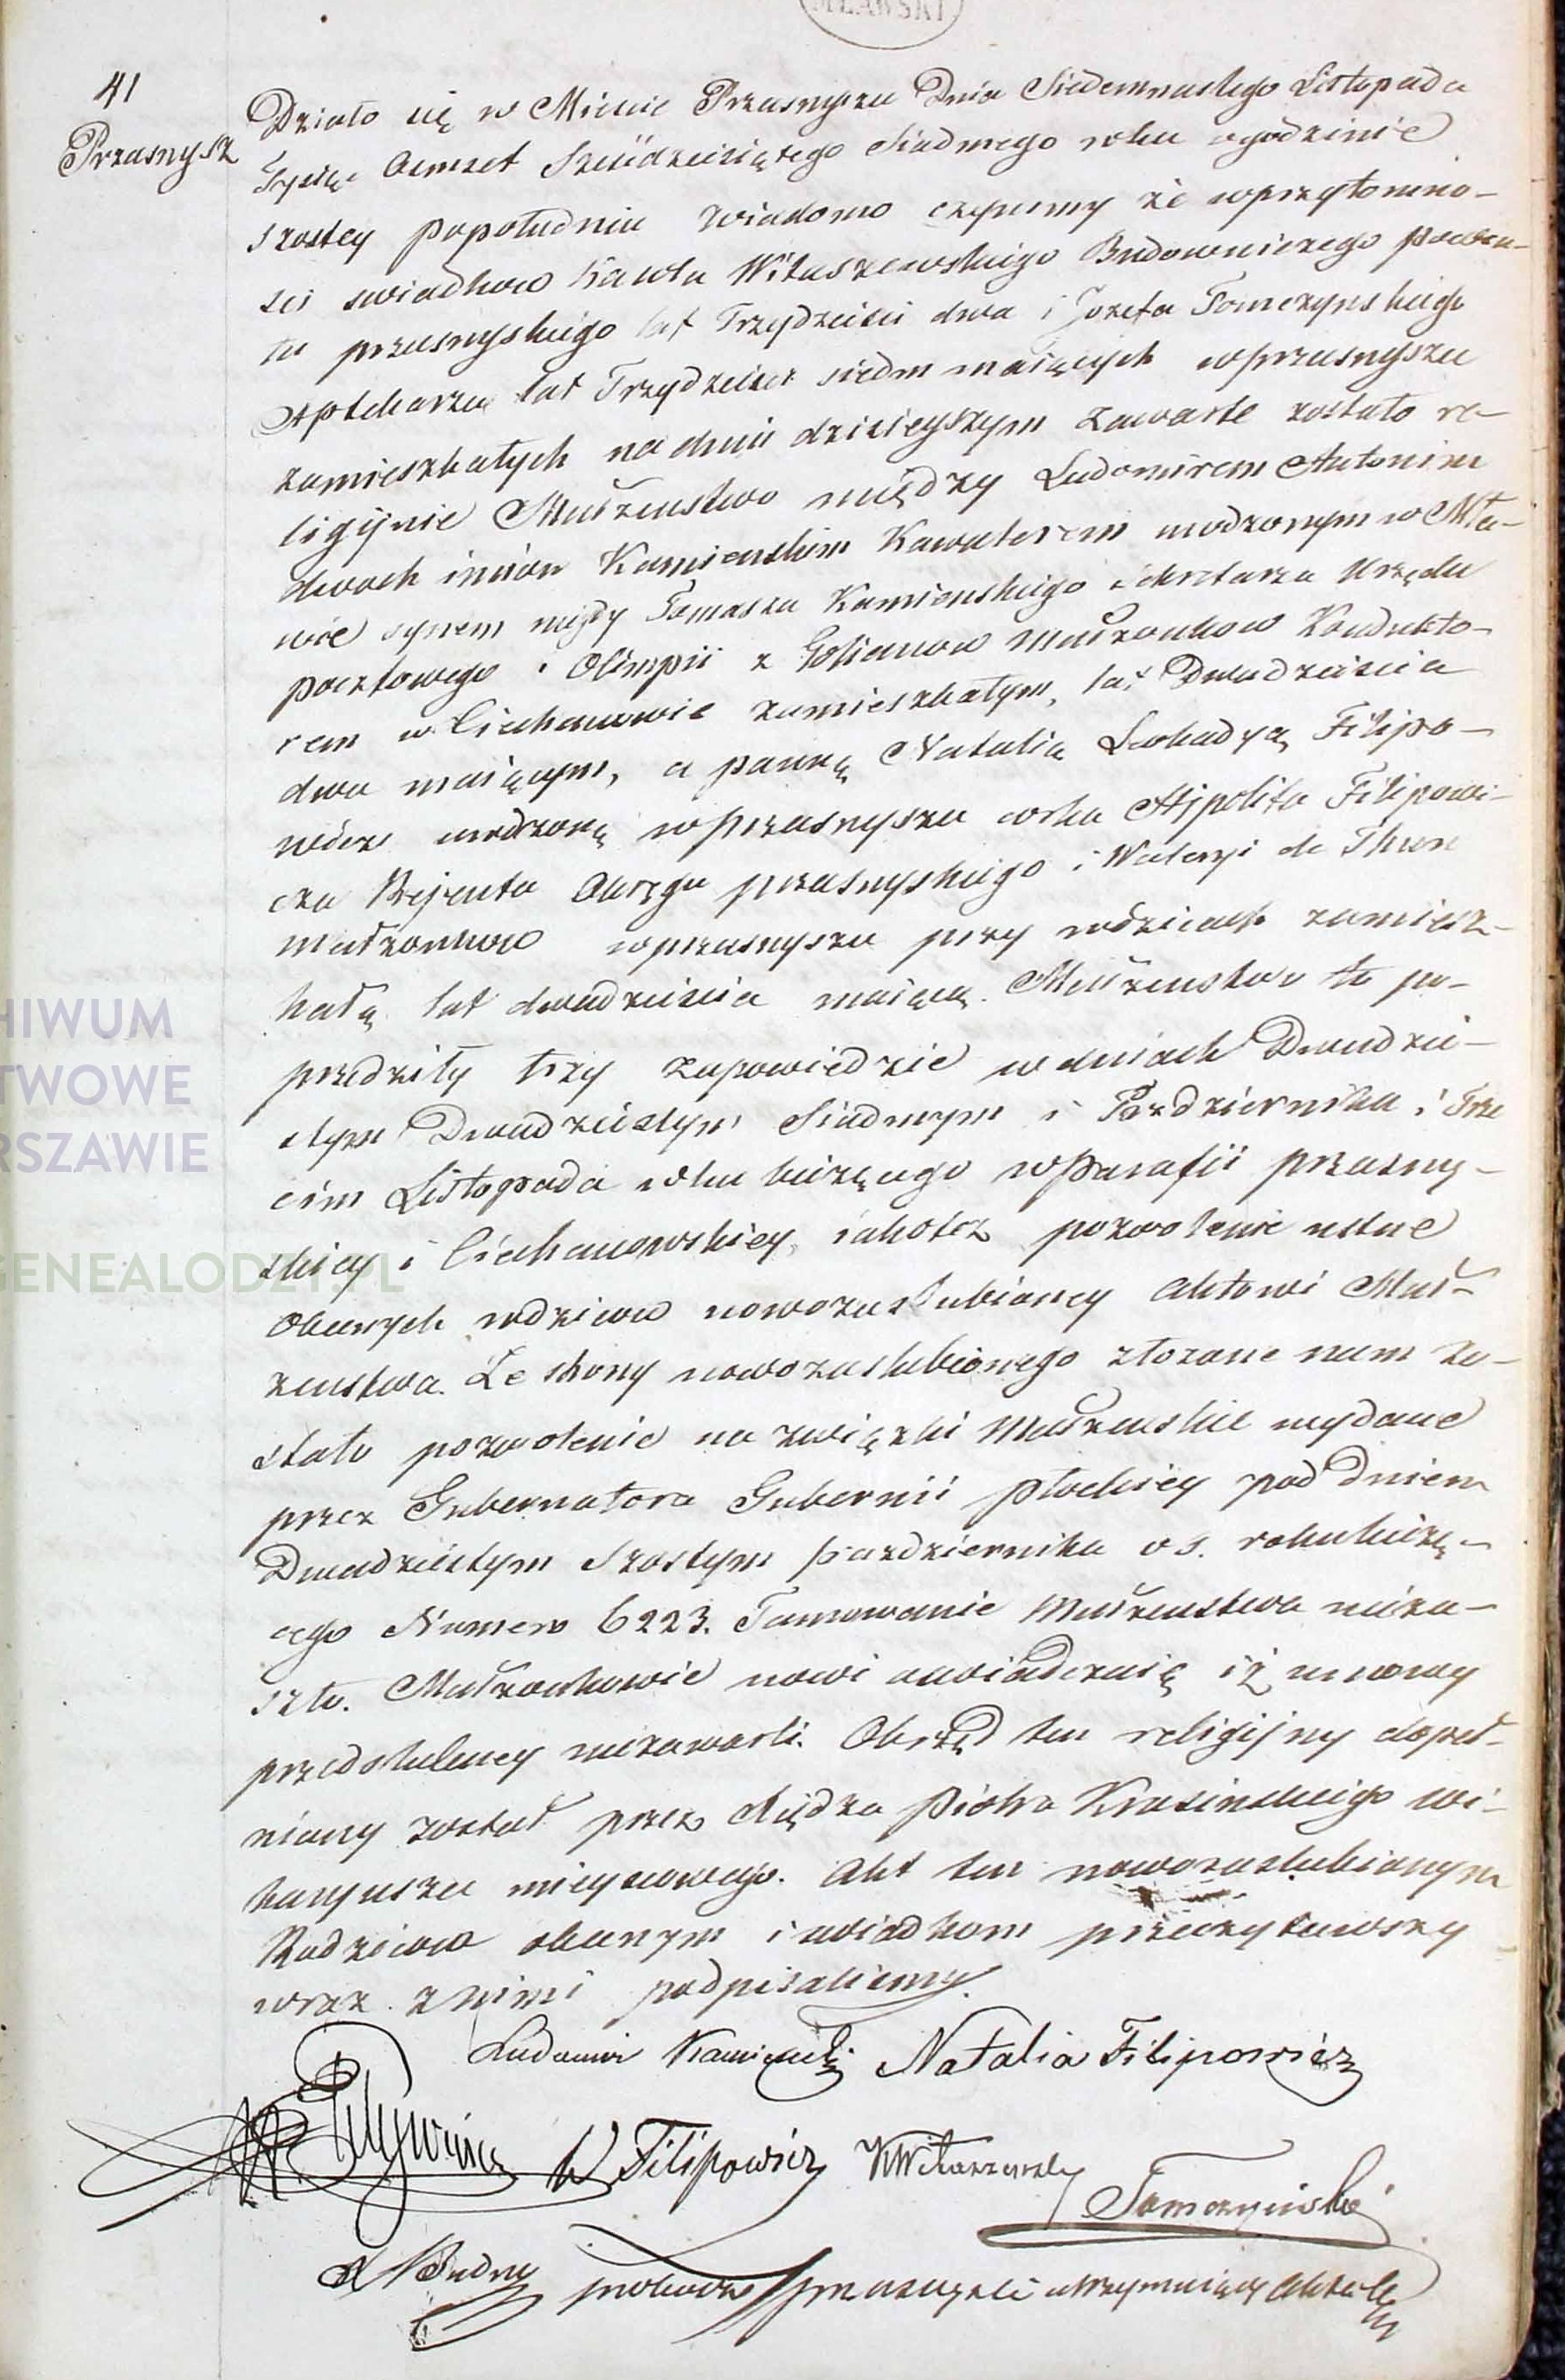 MŁAWSKI
41
Przasnysz
Działo się w Mieście Przasnyszu Dnia Siedemnastego Listopada
Tysiąc Osmset Sześćdziesiątego Siudmego roku ogodzinie
szostey popołudniu wiadomo czynimy że wprzytomno-
sci swiadkow Karola Witaszewskiego Budowniczego powia-
tu przasnyskiego lat Trzydziesci dwa i Jozefa Tomczynskiego
Aptekarza lat Trzydziesci siedm maiących wprzasnyszu
zamieszkałych na dniu dzisieyszym zawarte zostało re-
ligijnie Małżenstwo między Ludomirem Antonim
dwoch imion Kamienskim Kawalerem urodzonym w Mła-
wie synem niegdy Tomasza Kamienskiego sekretarza Urzędu
pocztowego i Olimpii z małżonkow Kondukto-
rem w Ciechanowie zamieszkałym, lat Dwadziescia
dwa maiącym, a panną Natalią Leokadyą Filipo-
wicz urodzoną wprzasnyszu corką Hippolita Filipowi-
cza Rejenta Okręgu przasnyskiego i Waleryi de Thun
małzonkow wprzasnyszu przy rodzicach zamiesz-
kałą lat dwadziescia maiącą. Małżenstwo to po-
przedziły trzy zapowiedzie w dniach Dwudzie-
stym Dwudziestym Siudmym i Pazdziernika i Trze
cim Listopada roku bieżącego wParafii przasny-
skiey i Ciechanowskiey, iakoteż pozwolenie ustne
obecnych rodzicow nowozaslubioney aktowi Mał-
zenstwa. Ze strony nowozaslubionego złozone nam zo-
stało pozwolenie na związki Małżenskie wydane
przez Gubernatora Gubernii płockiey pod Dniem
Dwudziestym szostym pazdziernika v s. roku bieżą-
cego Numero 6223. Tamowanie Małżenstwa nieza-
szło. Małżonkowie nowi oswiadczaią iż umowy
przedslubney niezawarli. Obrzęd ten religijny dopeł-
niony został przez Xiędza Piotra Krasinskiego wi-
karyusza mieyscowego. Akt ten nowozaslubionym
Rodzicom obecnym i swiadkom przeczytawszy
wraz z nimi podpisaliśmy.
Ludomir Kamieński Natalia Filipowicz
Filipowicz W Filipowicz KWitaszewski
Tomczyński
Budny proboszcz przasnyski utrzymuiący Akta